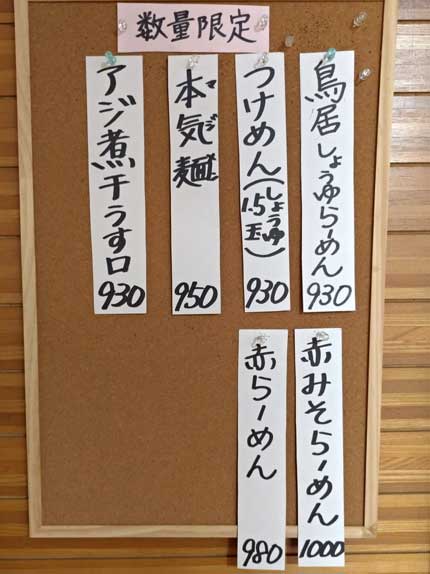 数量限定
鳥居しょうゆらーめん 930
つけめん(しょうゆ 1.5玉) 930
本気麺 マジメン 950
アジ煮干うす口 930
赤みそらーめん 1000
赤らーめん 980